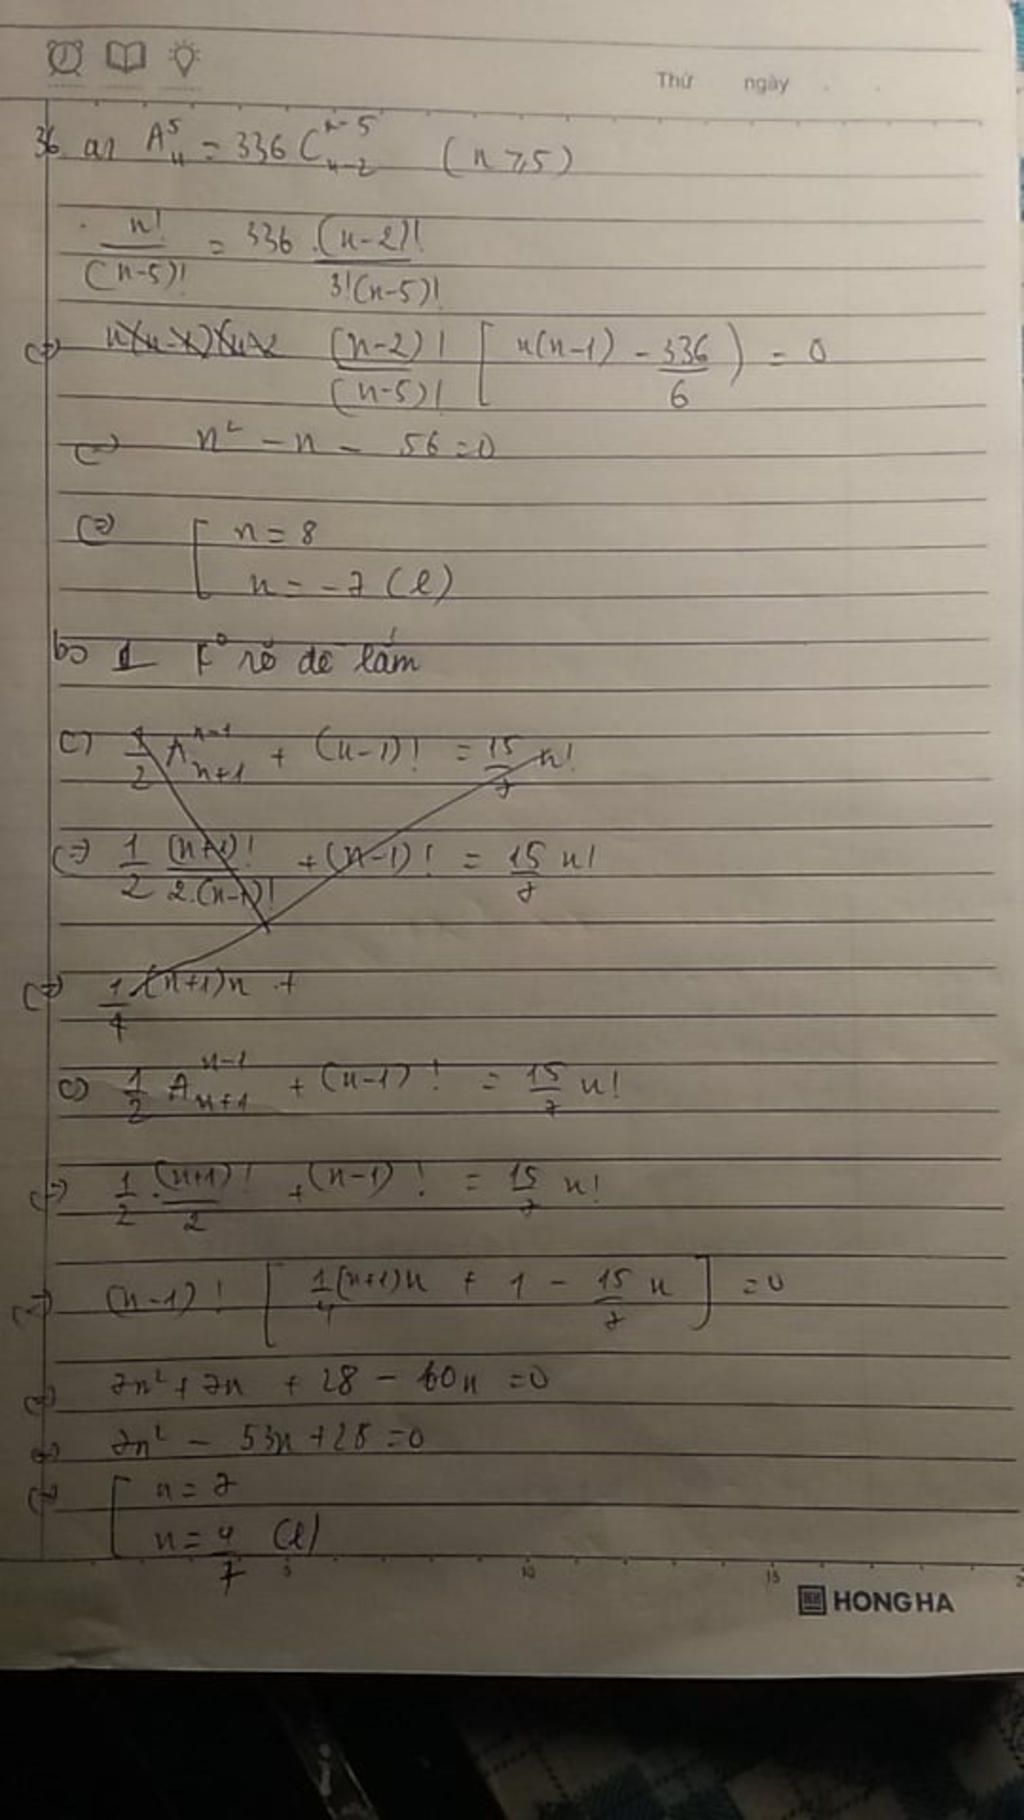 Thứ ngày
36. a, A⁵ₙ = 336 Cⁿ⁻⁵ₙ₋₂ (n ≥ 5)
n!/(n-5)! = 336 . (n-2)!/3!(n-5)!
(=) (n-2)!/(n-5)! [n(n-1) - 336/6) = 0
(=) n² - n - 56 = 0
(=) [ n = 8
n = -7 (l)
b) rõ đề lắm
c) 1/2 Aⁿ⁻¹ₙ₊₁ + (n-1)! = 15/7 n!
(=) 1/2 (n+1)!/2.(n-1)! + (n-1)! = 15/7 n!
(=) 1/4 (n+1)n +
c) 1/2 Aⁿ⁻¹ₙ₊₁ + (n-1)! = 15/7 n!
(=) 1/2 . (n+1)!/2 + (n-1)! = 15/7 n!
(=) (n-1)! [ 1/4 (n+1)n + 1 - 15/7 n ] = 0
(=) 7n² + 7n + 28 - 60n = 0
(=) 7n² - 53n + 28 = 0
(=) [ n = 7
n = 4/7 (l)
5 10 15
HONG HA